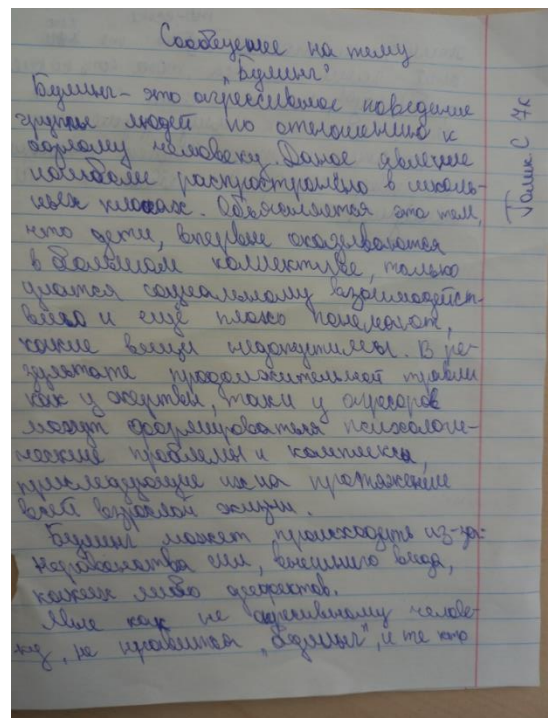 Сообщение на тему
"Булинг"
Булинг - это агрессивное поведение
группы людей по отношению к
одному человеку. Даное явление
наиболее распространёно в школь-
ных класах. Объясняется это тем,
что дети, впервые оказываются
в большом коллективе, только
учатся социальному взаимодейст-
вию и ещё плохо понемают,
какие вещи недопустимы. В ре-
зультате продолжительной травли
как у жертвы, таки у агресоров
могут сформироваться психологи-
ческие проблемы и комплексы,
приследующие их на протяжение
всей взрослой жизни.
Булинг может происходить из-за:
неравенства сил, внешнего вида,
каких либо дефектов.
Мне как не агресивному челове-
ку, не нравится "булинг", и те кто
7к